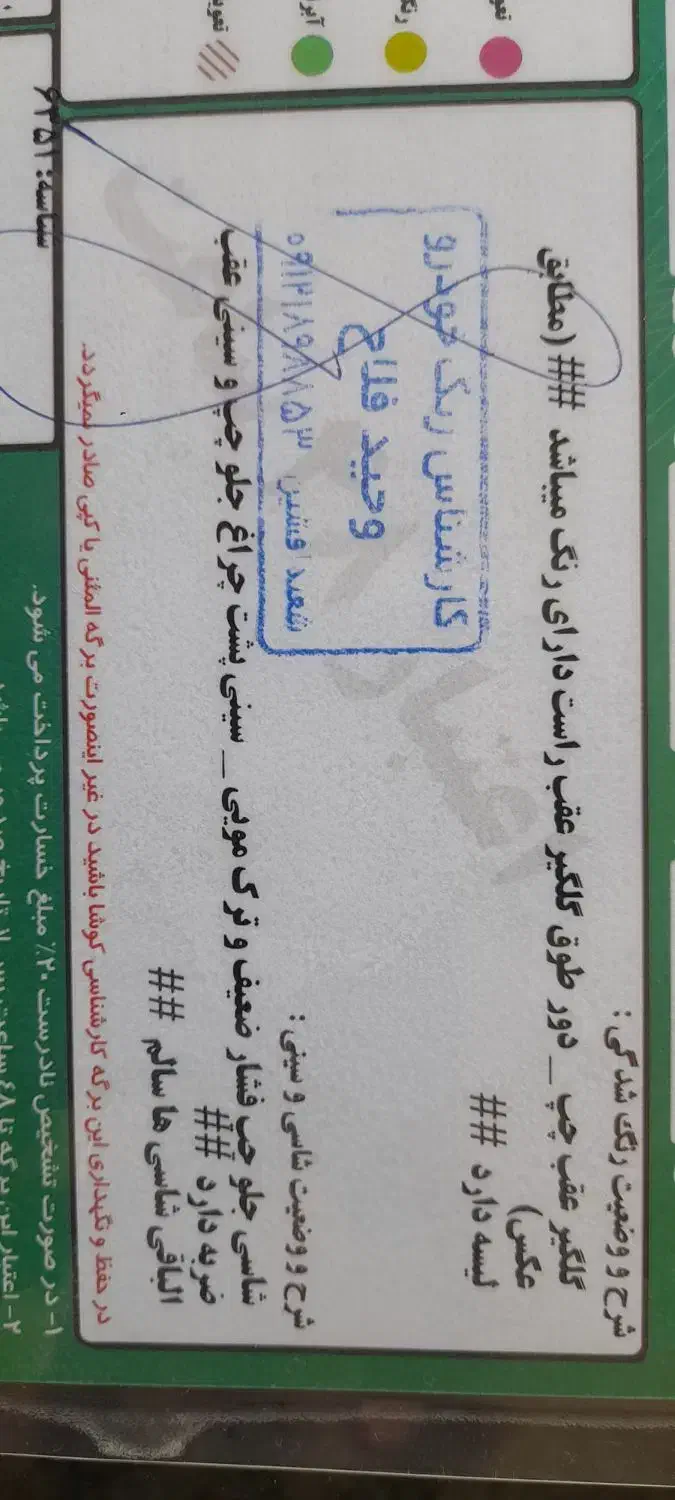 رنگ
شرح و وضعیت رنگ شدگی :
گلگیر عقب چپ _ دور طوق گلگیر عقب راست دارای رنگ میباشد ## (مطابق
عکس)
لیسه دارد ##
کارشناس رنگ خودرو
وحید فلاح
۰۹۱۲۱۸۹۸۸۵۳
شرح و وضعیت شاسی و سینی :
شاسی جلو چپ فشار ضعیف و ترک مویی _ سینی پشت چراغ جلو چپ و سینی عقب
ضربه دارد ##
الباقی شاسی ها سالم ##
در حفظ و نگهداری این برگه کارشناسی کوشا باشید در غیر اینصورت برگه المثنی یا کپی صادر نمیگردد.
۱- در صورت تشخیص نادرست ۲۰٪ مبلغ خسارت پرداخت می شود.
۲- اعتبار این برگه تا ۴۸ ساعت پس از تاریخ صدور می باشد
شناسه: ۶۲۵۱